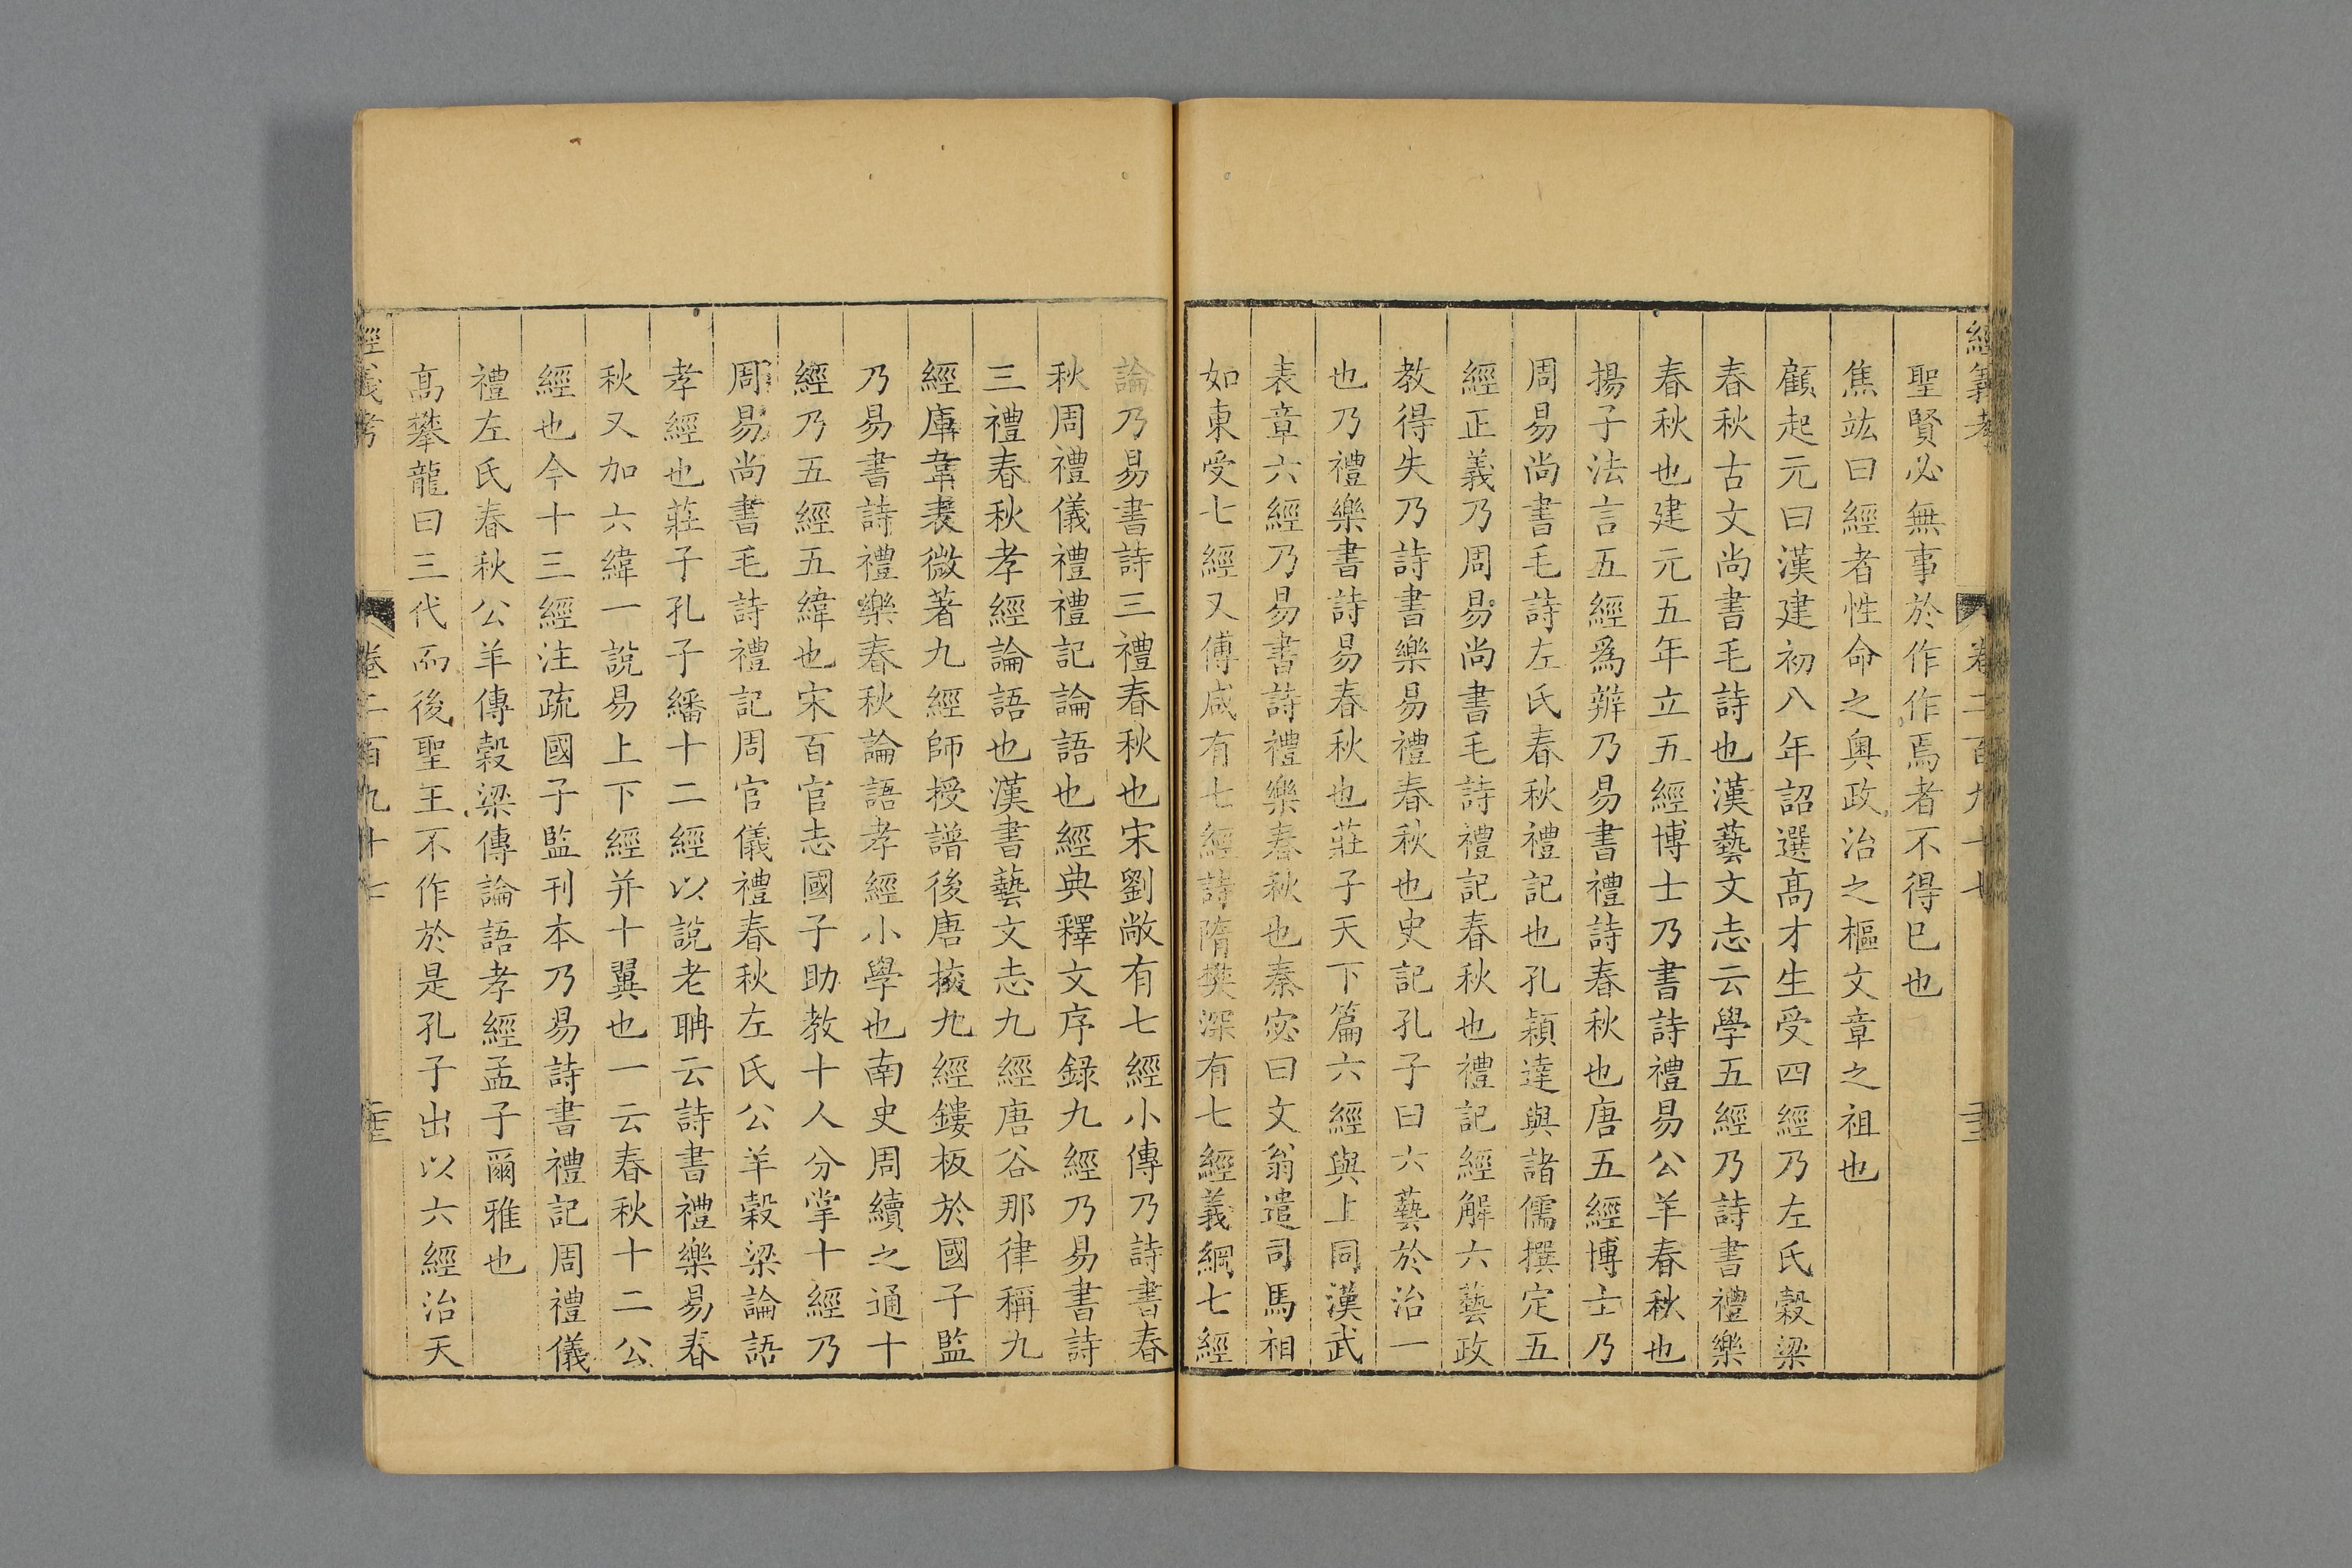 經義考 卷二百九十七
聖賢必無事於作作焉者不得已也
焦竑曰經者性命之奧政治之樞文章之祖也
顧起元曰漢建初八年詔選髙才生受四經乃左氏穀梁
春秋古文尚書毛詩也漢藝文志云學五經乃詩書禮樂
春秋也建元五年立五經博士乃書詩禮易公羊春秋也
揚子法言五經爲辨乃易書禮詩春秋也唐五經博士乃
周易尚書毛詩左氏春秋禮記也孔穎達與諸儒撰定五
經正義乃周易尚書毛詩禮記春秋也禮記經解六藝政
教得失乃詩書樂易禮春秋也史記孔子曰六藝於治一
也乃禮樂書詩易春秋也莊子天下篇六經與上同漢武
表章六經乃易書詩禮樂春秋也秦宓曰文翁遣司馬相
如東受七經又傅咸有七經詩隋樊深有七經義綱七經
論乃易書詩三禮春秋也宋劉敞有七經小傳乃詩書春
秋周禮儀禮禮記論語也經典釋文序錄九經乃易書詩
三禮春秋孝經論語也漢書藝文志九經唐谷那律稱九
經庫韋表微著九經師授譜後唐挍九經鏤板於國子監
乃易書詩禮樂春秋論語孝經小學也南史周續之通十
經乃五經五緯也宋百官志國子助教十人分掌十經乃
周易尚書毛詩禮記周官儀禮春秋左氏公羊穀梁論語
孝經也莊子孔子繙十二經以說老聃云詩書禮樂易春
秋又加六緯一說易上下經并十翼也一云春秋十二公
經也今十三經注疏國子監刊本乃易詩書禮記周禮儀
禮左氏春秋公羊傳穀梁傳論語孝經孟子爾雅也
髙攀龍曰三代而後聖王不作於是孔子出以六經治天
經義考 卷二百九十七